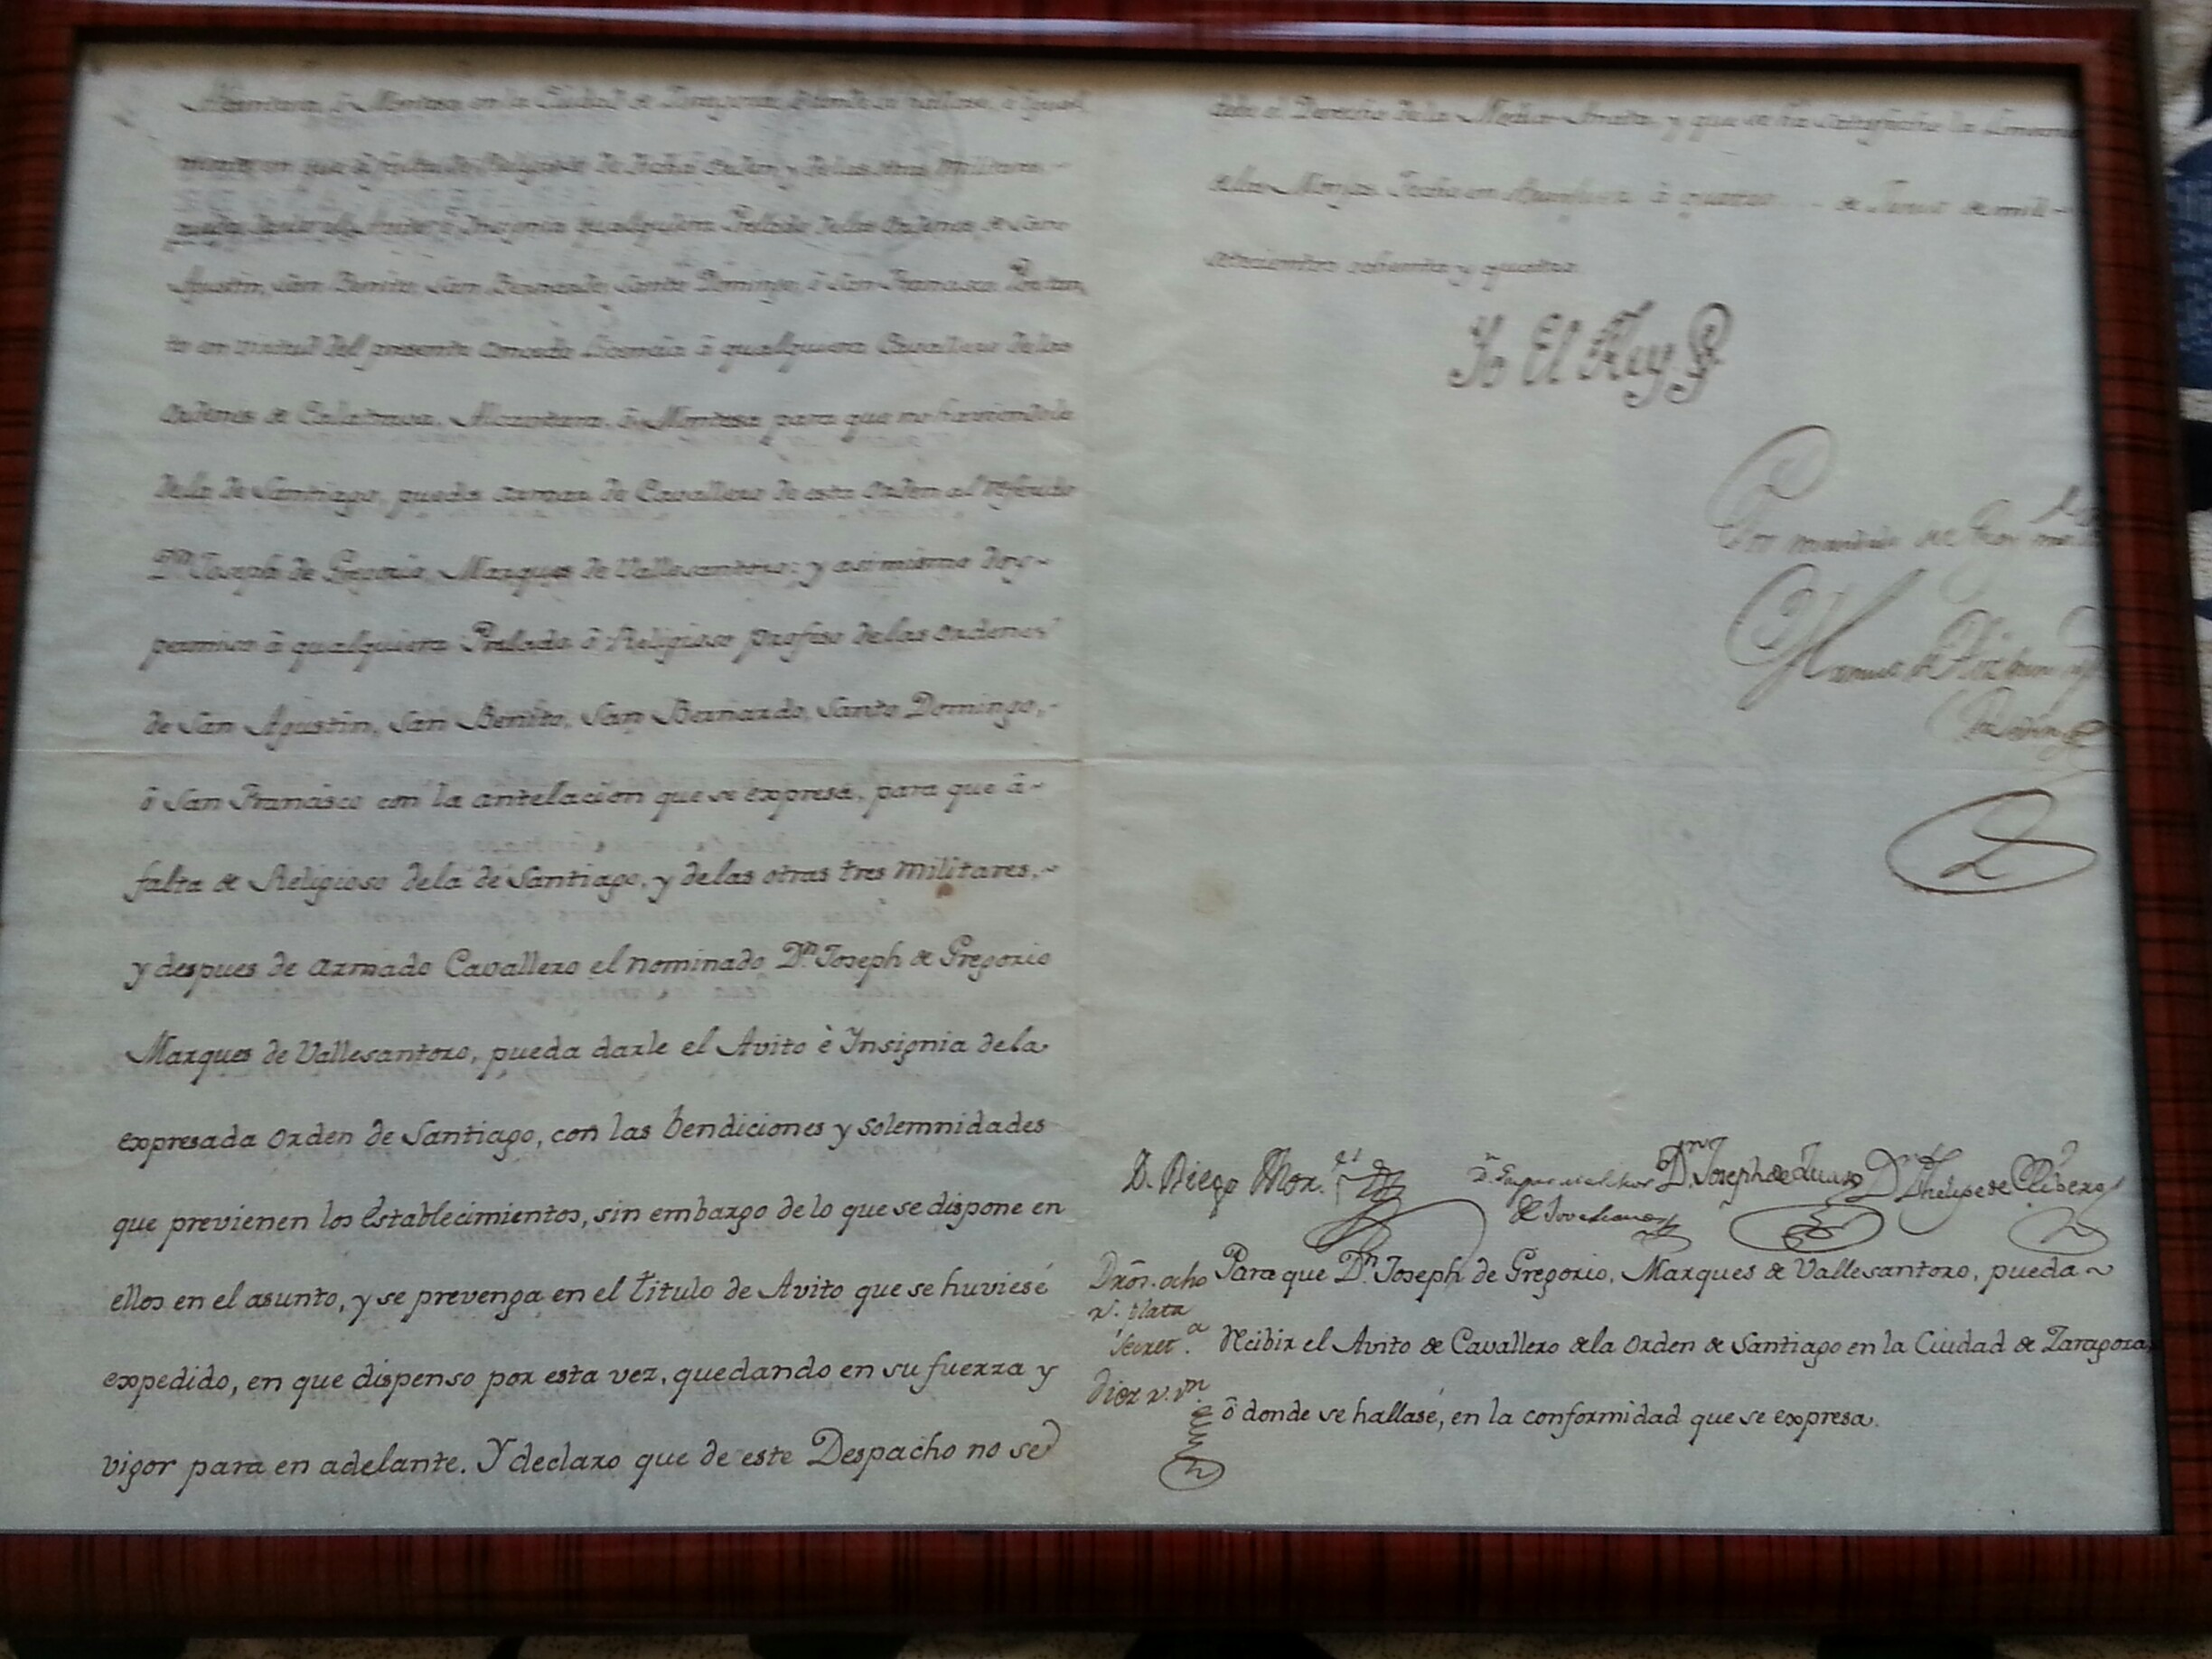 Alcantara, ò Montesa en la Ciudad de Zaragoza, ò donde se hallase, è igual
mente en que à falta de Religioso de dicha Orden y de las otras Militares
pueda darle el Avito è Insignia qualquiera Prelado delas Ordenes de San
Agustin, San Benito, San Bernardo, Santo Domingo, ò San Francisco. Por tan
to en virtud del presente concedo licencia à qualquiera Cavallero delas
Ordenes de Calatrava, Alcantara, ò Montesa para que no haviendole
dela de Santiago, pueda armar de Cavallero de esta Orden al referido
Dn. Joseph de Gregorio, Marques de Vallesantoro: y asimismo doy
permiso à qualquiera Prelado ò Religioso profeso delas ordenes
de San Agustin, San Benito, San Bernardo, Santo Domingo,
ò San Francisco con la antelacion que se expresa, para que à
falta de Religioso dela de Santiago, y delas otras tres Militares,
y despues de armado Cavallero el nominado Dn. Joseph de Gregorio
Marques de Vallesantoro, pueda darle el Avito è Insignia dela
expresada Orden de Santiago, con las bendiciones y solemnidades
que previenen los Establecimientos, sin embargo de lo que se dispone en
ellos en el asunto, y se prevenga en el titulo de Avito que se huviese
expedido, en que dispenso por esta vez, quedando en su fuerza y
vigor para en adelante. Y declaro que de este Despacho no se
debe el Derecho dela Media-Anata, y que se ha satisfecho la Limosna
delas Monjas. Fecho en Aranjuez à quatro de Junio de mil
setecientos ochenta y quatro
Yo El Rey
Por mandado del Rey
Manuel de
D. Diego
Dn. Gaspar Melchor
de Jovellanos
Dn. Joseph de
Dn. Phelipe de Ribero
Dròs. ocho
r. plata
Secret.a
diez r. vn.
Para que Dn. Joseph de Gregorio, Marques de Vallesantoro, pueda
recibir el Avito de Cavallero dela Orden de Santiago en la Ciudad de Zaragoza,
ò donde se hallase, en la conformidad que se expresa.